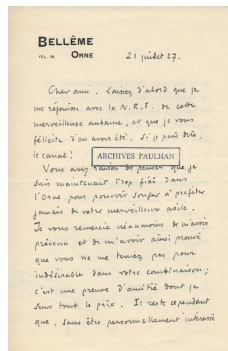 BELLÊME
TÉL. 28 ORNE
21 juillet 27.
Cher ami. Laissez d'abord que je
me réjouisse avec la N.R.F. de cette
merveilleuse aubaine, et que je vous
félicite d'en avoir été, si je puis dire,
le canal!
ARCHIVES PAULHAN
Vous avez raison de penser que je
suis maintenant trop fixé dans
l'Orne pour pouvoir songer à profiter
jamais de votre merveilleux asile.
Je vous remercie néanmoins de m'avoir
prévenu et de m'avoir ainsi prouvé
que vous ne me teniez pas pour
indésirable dans votre combinaison;
c'est une preuve d'amitié dont je
sens tout le prix. Il reste cependant
que, sans être personnellement intéressé